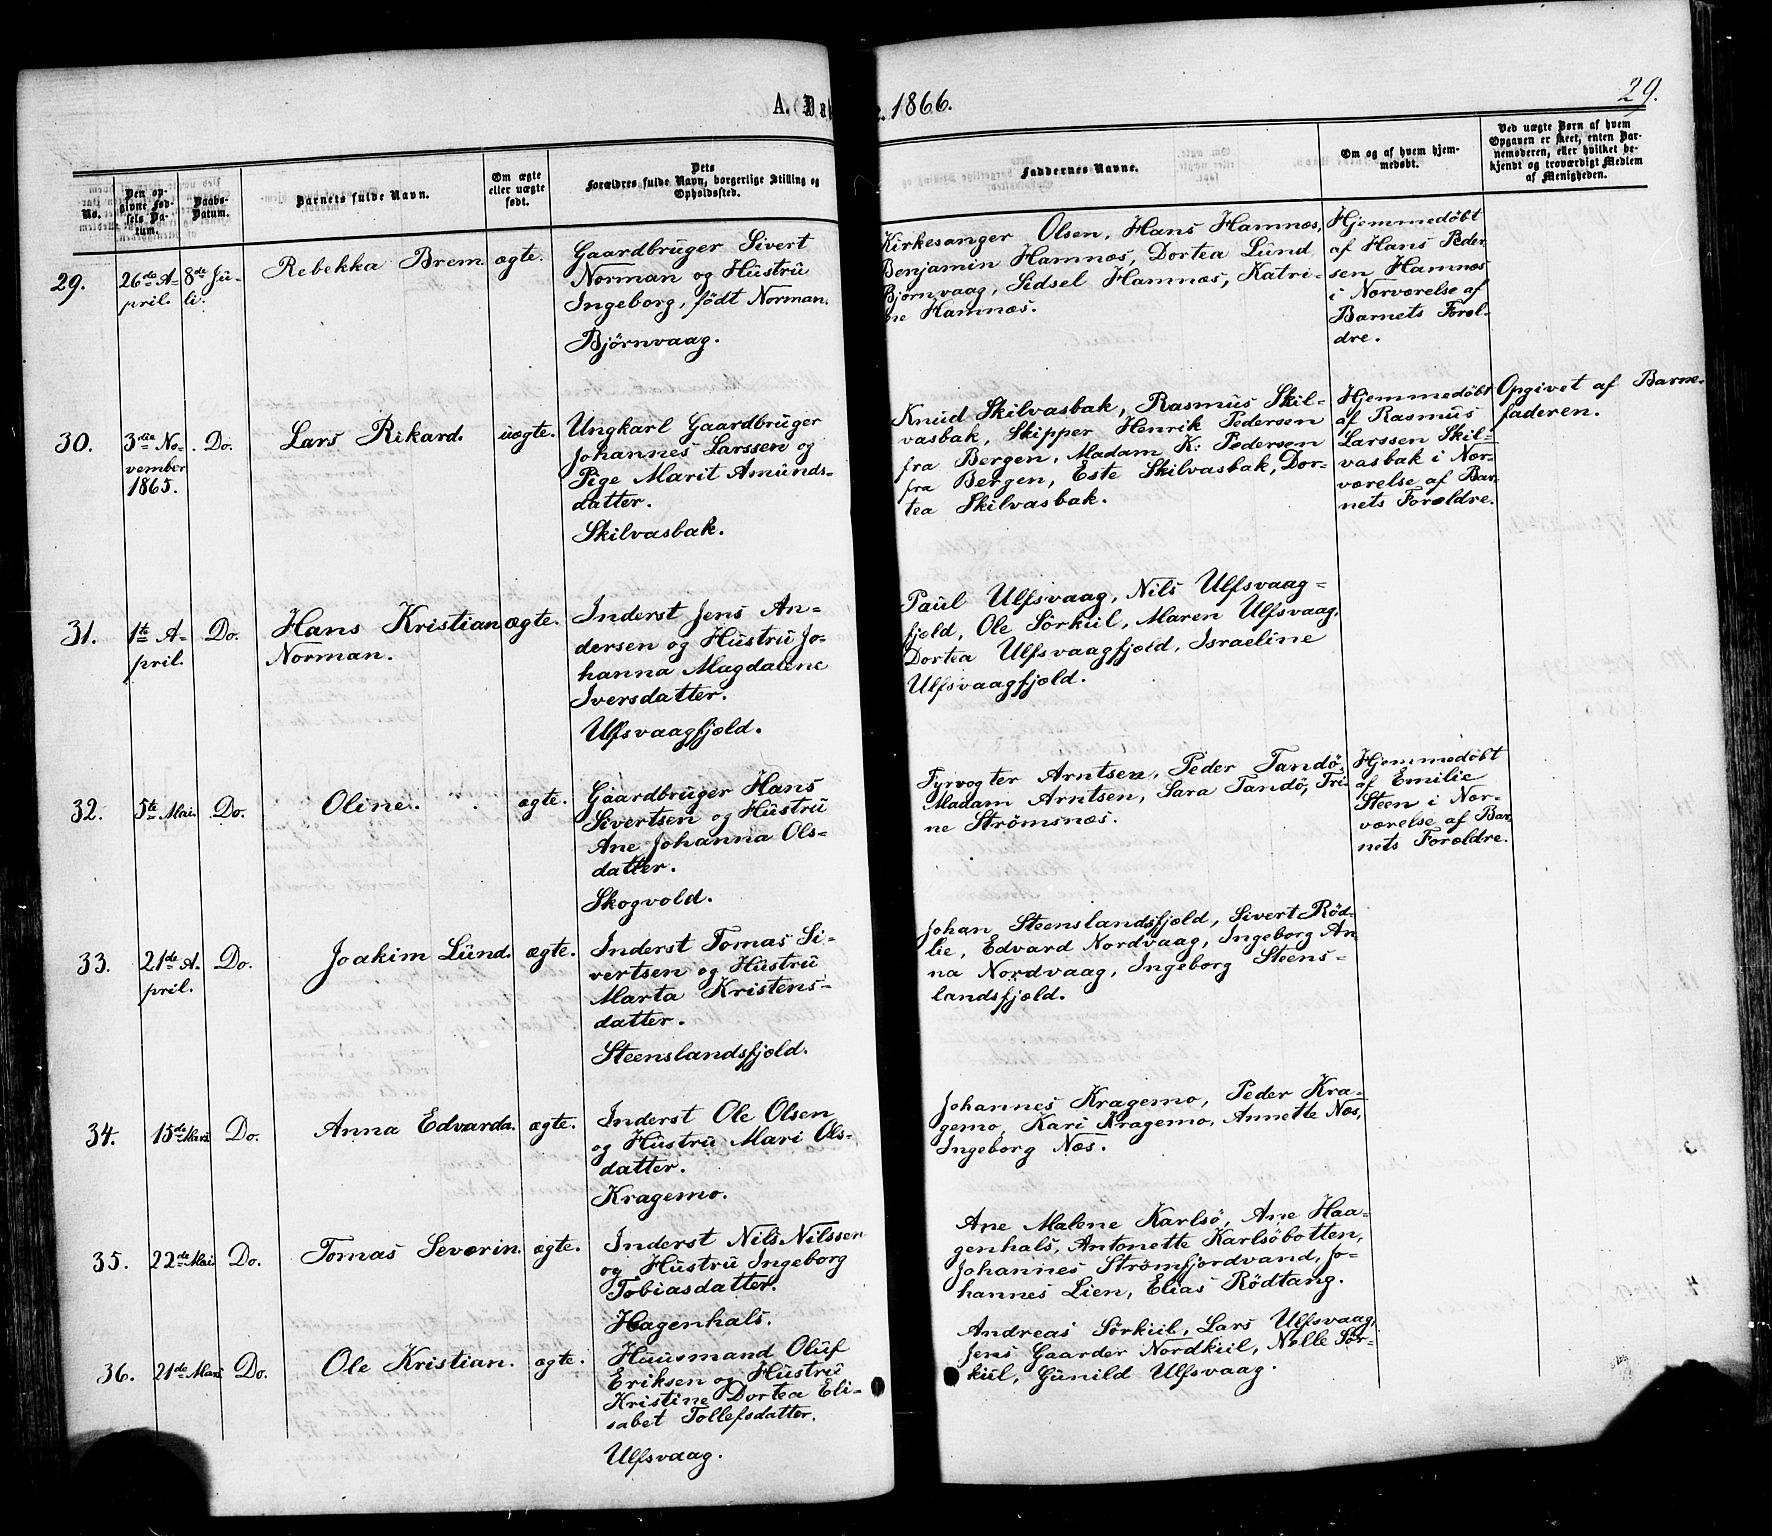 A. Dø 1866.
29.
No.
Den opgivne Fødsels Datum.
Daabs-Datum.
Barnets fulde Navn.
Om ægte eller uægte født.
Dets Forældres fulde Navn, borgerlige Stilling og Opholdssted.
Faddernes Navne.
Om og af hvem hjemmedøbt.
Ved uægte Børn af hvem Opgaven er skeet, enten Barnemoderen, eller hvilket bekjendt og troværdigt Medlem af Menigheden.
29.
26de A-
pril.
8de Ju-
li.
Rebekka Brem
ægte.
Gaardbruger Sivert
Norman og Hustru
Ingeborg, født Norman.
Bjørnvaag.
Kirkesanger Olsen, Hans Hamnæs,
Benjamin Hamnæs, Dortea Lund
Bjørnvaag, Sidsel Hamnæs, Katri-
ne Hamnæs.
Hjemmedøbt
af Hans Peder
sen Hamnæs
i Nærværelse af
Barnets Foræl-
dre.
30.
3die No-
vember
1865.
Do.
Lars Rikard.
uægte.
Ungkarl Gaardbruger
Johannes Larssen og
Pige Marit Amunds-
datter.
Skilvasbak.
Knud Skilvasbak, Rasmus Skil-
vasbak, Skipper Henrik Pedersen
fra Bergen, Madam K. Pedersen
fra Bergen, Este Skilvasbak, Dor-
tea Skilvasbak.
Hjemmedøbt
af Rasmus
Larssen Skil-
vasbak i Nær-
værelse af Bar
nets Forældre.
Opgivet af Barne-
faderen.
31.
1te A-
pril.
Do.
Hans Kristian
Norman.
ægte.
Inderst Jens An-
dersen og Hustru Jo-
hanna Magdalene
Iversdatter.
Ulfsvaagfjæld.
Paul Ulfsvaag, Nils Ulfsvaag-
fjæld, Ole Sörkiil, Maren Ulfsvaag,
Dortea Ulfsvaagfjæld, Israeline
Ulfsvaagfjæld.
32.
5te Mai.
Do.
Oline.
ægte.
Gaardbruger Hans
Sivertsen og Hustru
Ane Johanna Ols-
datter.
Skogvold.
Fyrvogter Arntsen, Peder Tandö,
Madam Arntsen, Sara Tandö, Tri
ne Strömsnæs.
Hjemmedøbt
af Emilie
Steen i Nær-
værelse af Bar
nets Forældre.
33.
21de A-
pril.
Do.
Joakim Lund.
ægte.
Inderst Tomas Si-
vertsen og Hustru
Marta Kristens-
datter.
Steenslandsfjæld.
Johan Steenslandsfjæld, Sivert Röd-
lie, Edvard Nordvaag, Ingeborg An
na Nordvaag, Ingeborg Steens-
landsfjæld.
34.
15de Mai
Do.
Anna Edvarda.
ægte.
Inderst Ole Olsen
og Hustru Mari Ols-
datter.
Kragemo.
Johannes Kragemo, Peder Kra-
gemo, Kari Kragemo, Annette Næs,
Ingeborg Næs.
35.
22de Mai
Do.
Tomas Severin.
ægte.
Inderst Nils Nilssen
og Hustru Ingeborg
Tobiasdatter.
Hagenhals.
Ane Malene Karlsö, Ane Haa-
genhals, Antonette Karlsöbotten,
Johannes Strömfjordvand, Jo-
hannes Lien, Elias Rödtang.
36.
21de Mai
Do.
Ole Kristian.
ægte.
Huusmand Oluf
Eriksen og Hustru
Kristine Dortea Eli-
sabet Tollefsdatter.
Ulfsvaag.
Andreas Sörkiil, Lars Ulfsvaag,
Jens Gaarder Nordkiil, Nelle Sör-
kiil, Gunild Ulfsvaag.